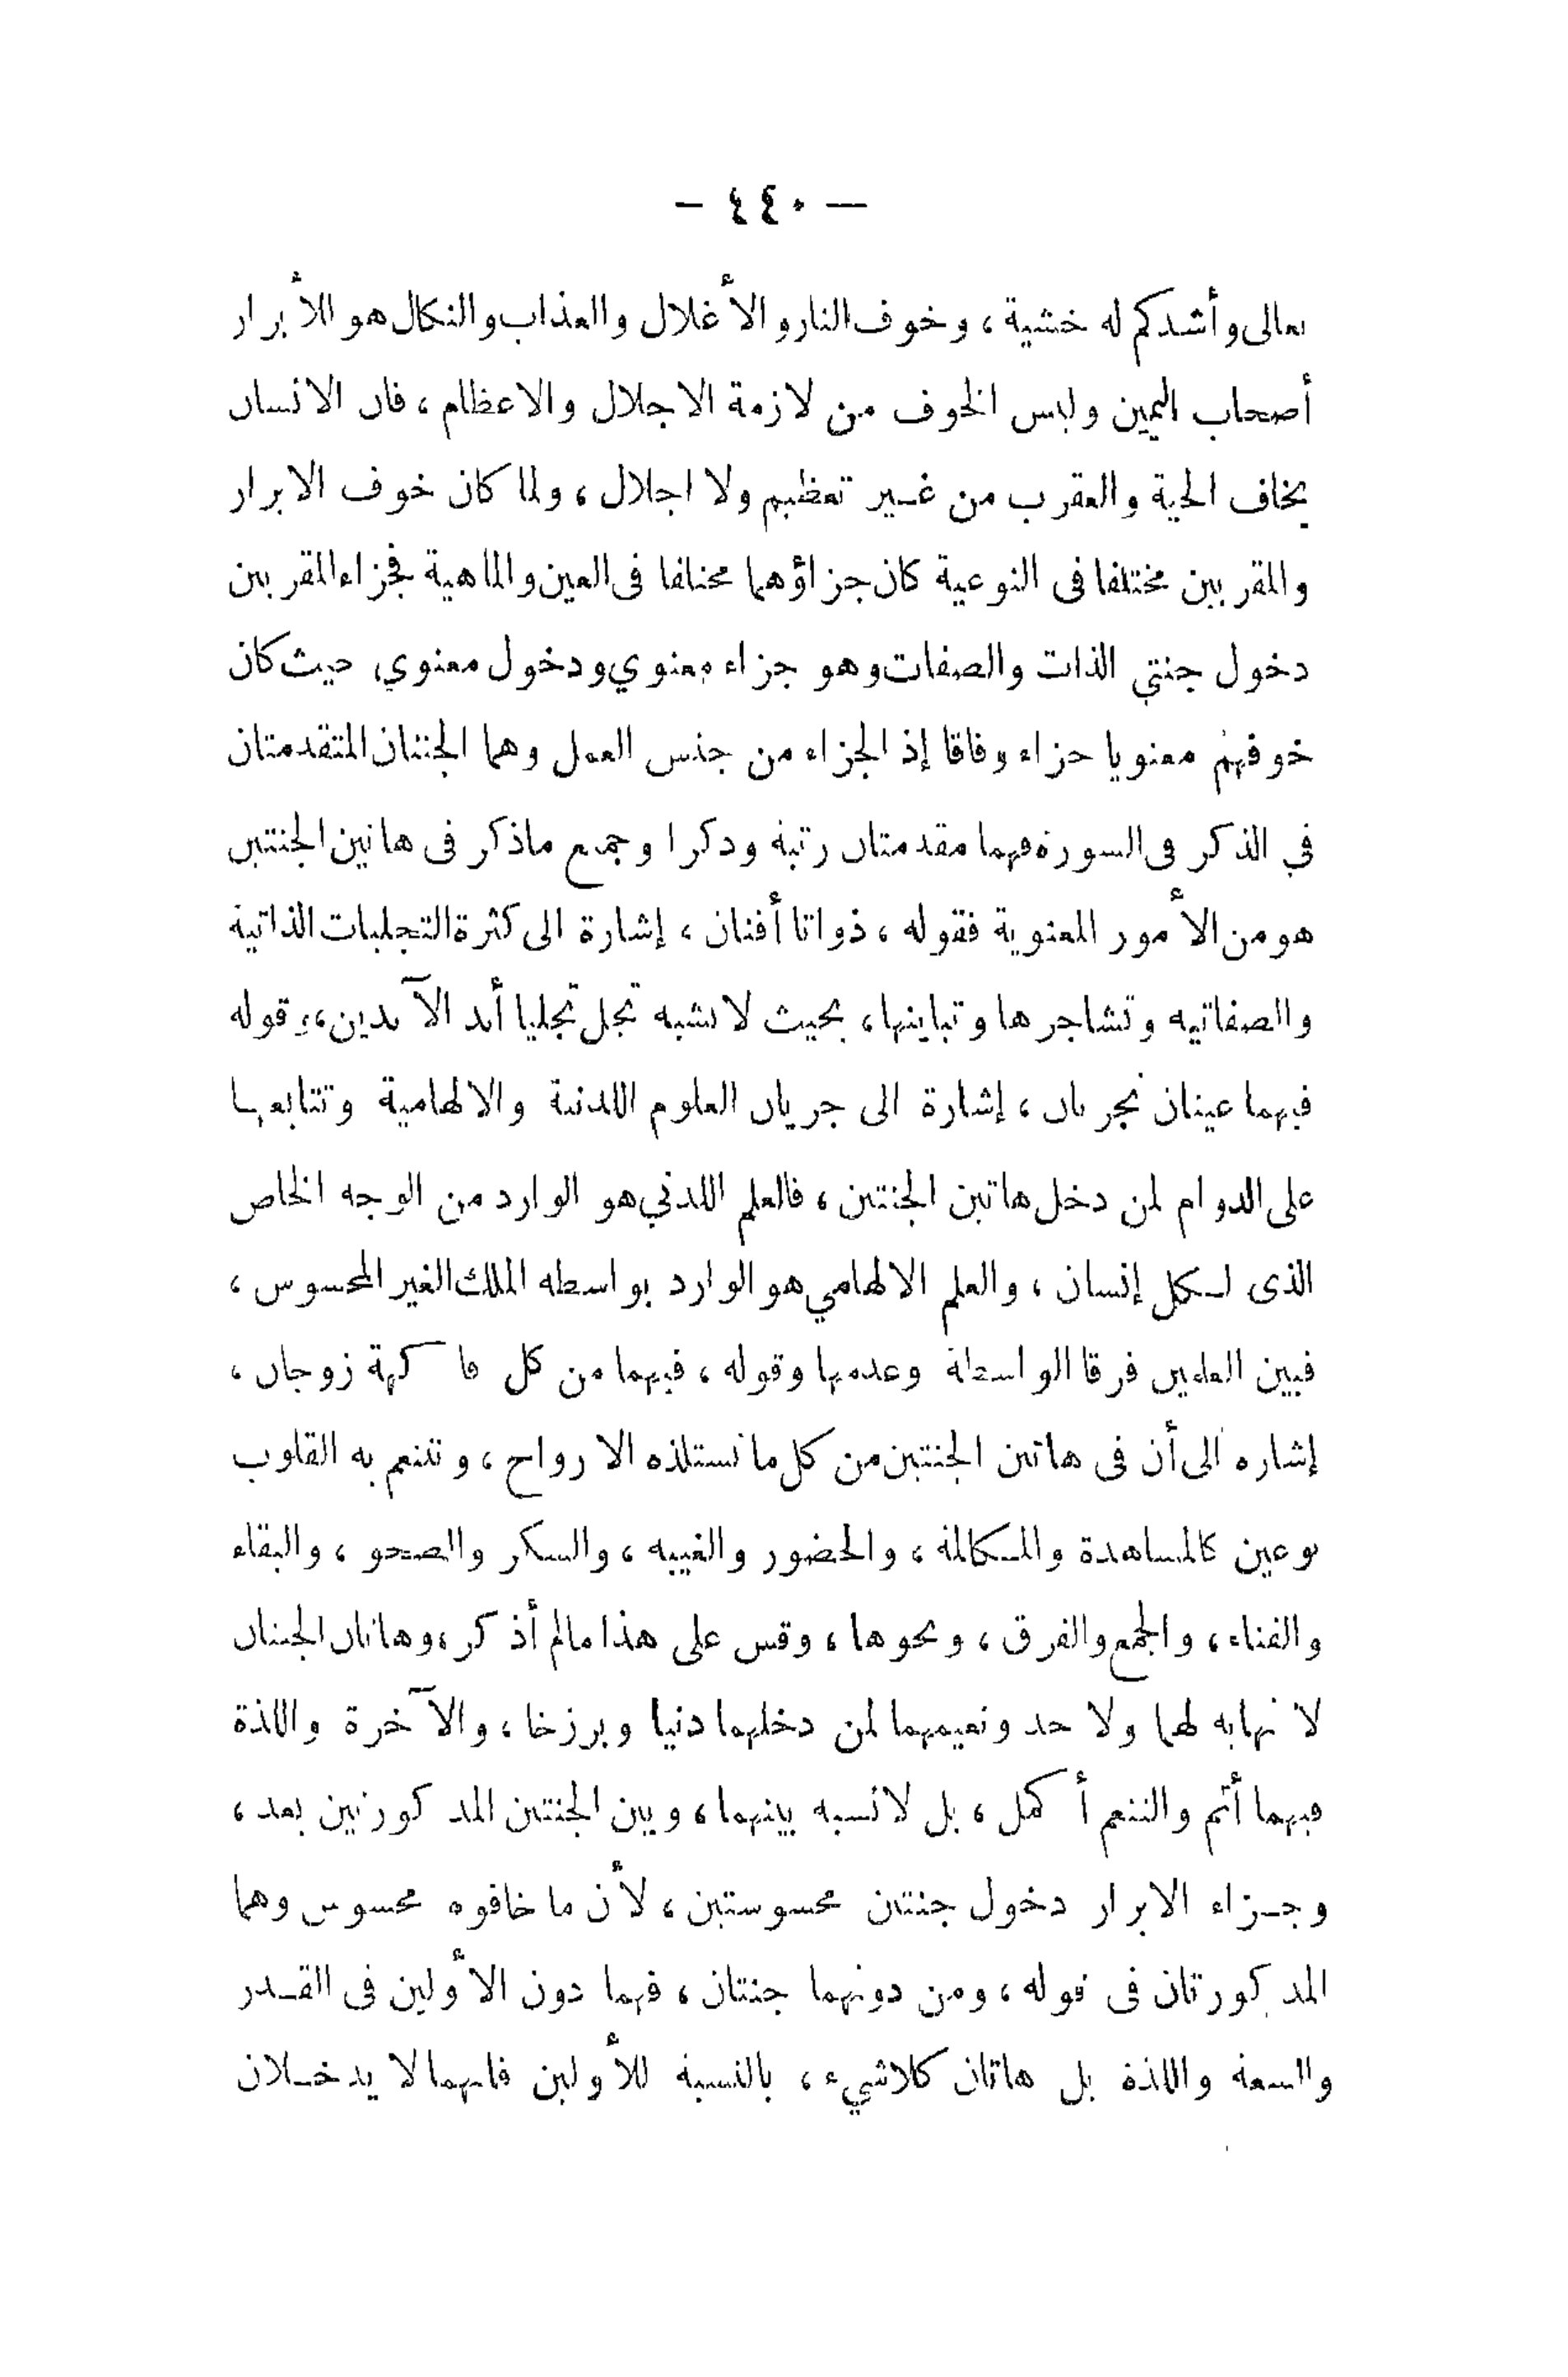 — ٤٤٠ —
تعالى وأشدكم له خشية ، وخوف النار والأغلال والعذاب والنكال هو للأبرار
أصحاب اليمين وليس الخوف من لازمة الاجلال والاعظام ، فان الانسان
يخاف الحية والعقرب من غير تعظيم ولا اجلال ، ولما كان خوف الابرار
والمقربين مختلفا فى النوعية كان جزاؤهما مختلفا فى العين والماهية فجزاء المقربين
دخول جنتي الذات والصفات وهو جزاء معنوي ودخول معنوي، حيث كان
خوفهم معنويا جزاء وفاقا إذ الجزاء من جنس العمل وهما الجنتان المتقدمتان
في الذكر فى السورة فهما مقدمتان رتبة وذكرا وجميع ماذكر فى هاتين الجنتين
هو من الأمور المعنوية فقوله ، ذواتا أفنان ، إشارة الى كثرة التجليات الذاتية
والصفاتيه وتشاجرها وتباينها، بحيث لا يشبه تجل تجليا أبد الآبدين، وقوله
فيهما عينان تجريان ، إشارة الى جريان العلوم اللدنية والالهامية وتتابعها
على الدوام لمن دخل هاتين الجنتين ، فالعلم اللدني هو الوارد من الوجه الخاص
الذى لكل إنسان ، والعلم الالهامي هو الوارد بواسطه الملك الغير المحسوس ،
فبين العلمين فرقا الواسطة وعدمها وقوله ، فيهما من كل فاكهة زوجان ،
إشاره الى أن فى هاتين الجنتين من كل ما تستلذه الارواح ، وتتنعم به القلوب
نوعين كالمشاهدة والمكالمة ، والحضور والغيبه ، والسكر والصحو ، والبقاء
والفناء ، والجمع والفرق ، ونحوها ، وقس على هذا مالم أذكر ، وهاتان الجنتان
لا نهايه لهما ولا حد ونعيمهما لمن دخلهما دنيا وبرزخا ، والآخرة واللذة
فيهما أتم والتنعم أكمل ، بل لا نسبه بينهما ، وبين الجنتين المذكورتين بعد ،
وجزاء الابرار دخول جنتين محسوستين ، لأن ما خافوه محسوس وهما
المذكورتان فى قوله ، ومن دونهما جنتان ، فهما دون الأولين فى القدر
والسعة واللذة بل هاتان كلاشيء ، بالنسبة للأولين فانهما لا يدخلان